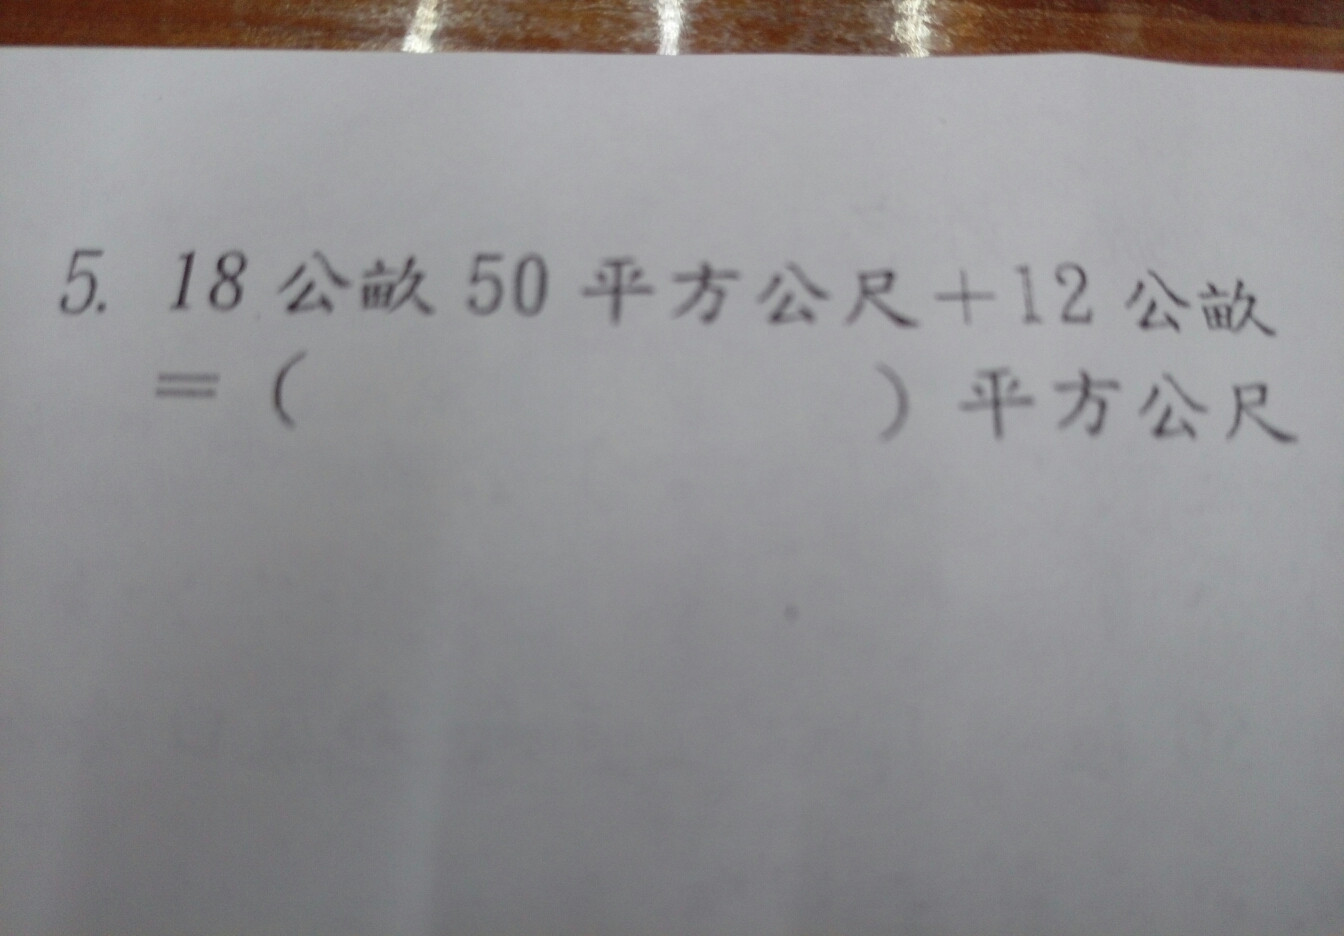 5. 18 公畝 50 平方公尺＋12 公畝
＝（　　　　　　）平方公尺